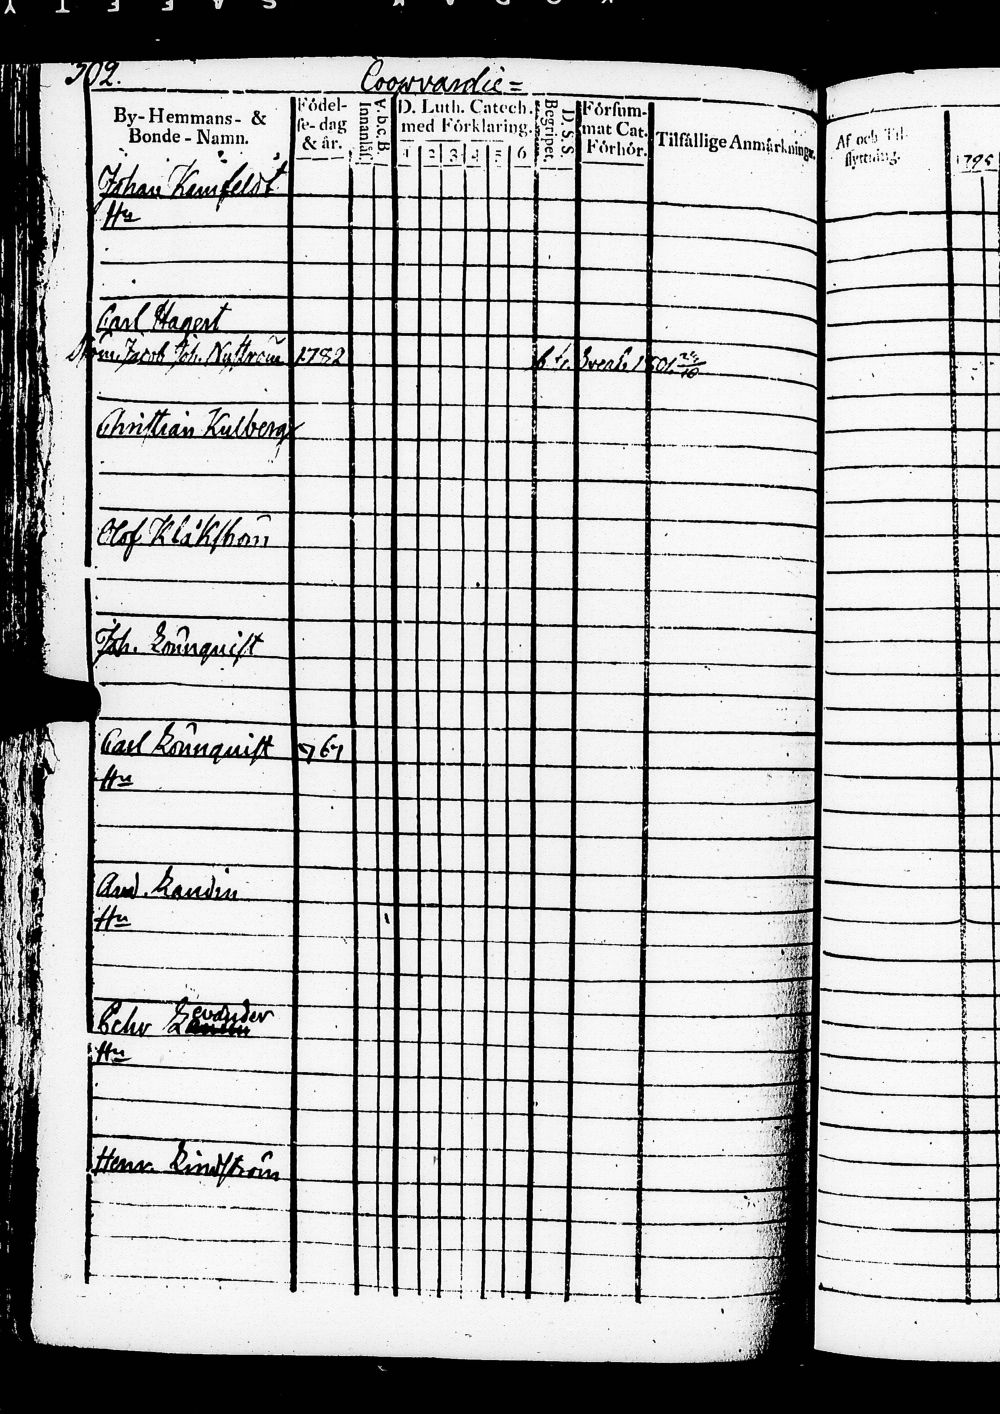 302.
Coopvardie=
By-Hemmans- &
Bonde-Namn.
Födel-
se-dag
& år.
A.b.c.B.
Innanläs.
D. Luth. Catech.
med Förklaring.
1 2 3 4 5 6
D. S. S.
Begripet.
Försum-
mat Cat.
Förhör.
Tilfällige Anmärkningar.
Af och Til-
flyttning.
1795
Johan Kamfeldt
Hu
Carl Hagert
Jacob Joh. Nyström 1782
Christian Kulberg
Olof Kläkström
Joh. Lönnquist
Carl Lönnquist 767
Hu
And. Landin
Hu
Levander
Hu
Henr. Lindström